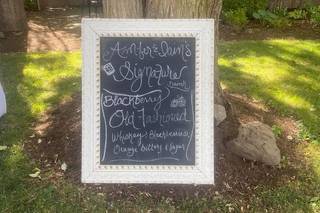 Signature
Drink
Blackberry
Old Fashioned
Whiskey, Blackberries,
Orange bitters & Sugar